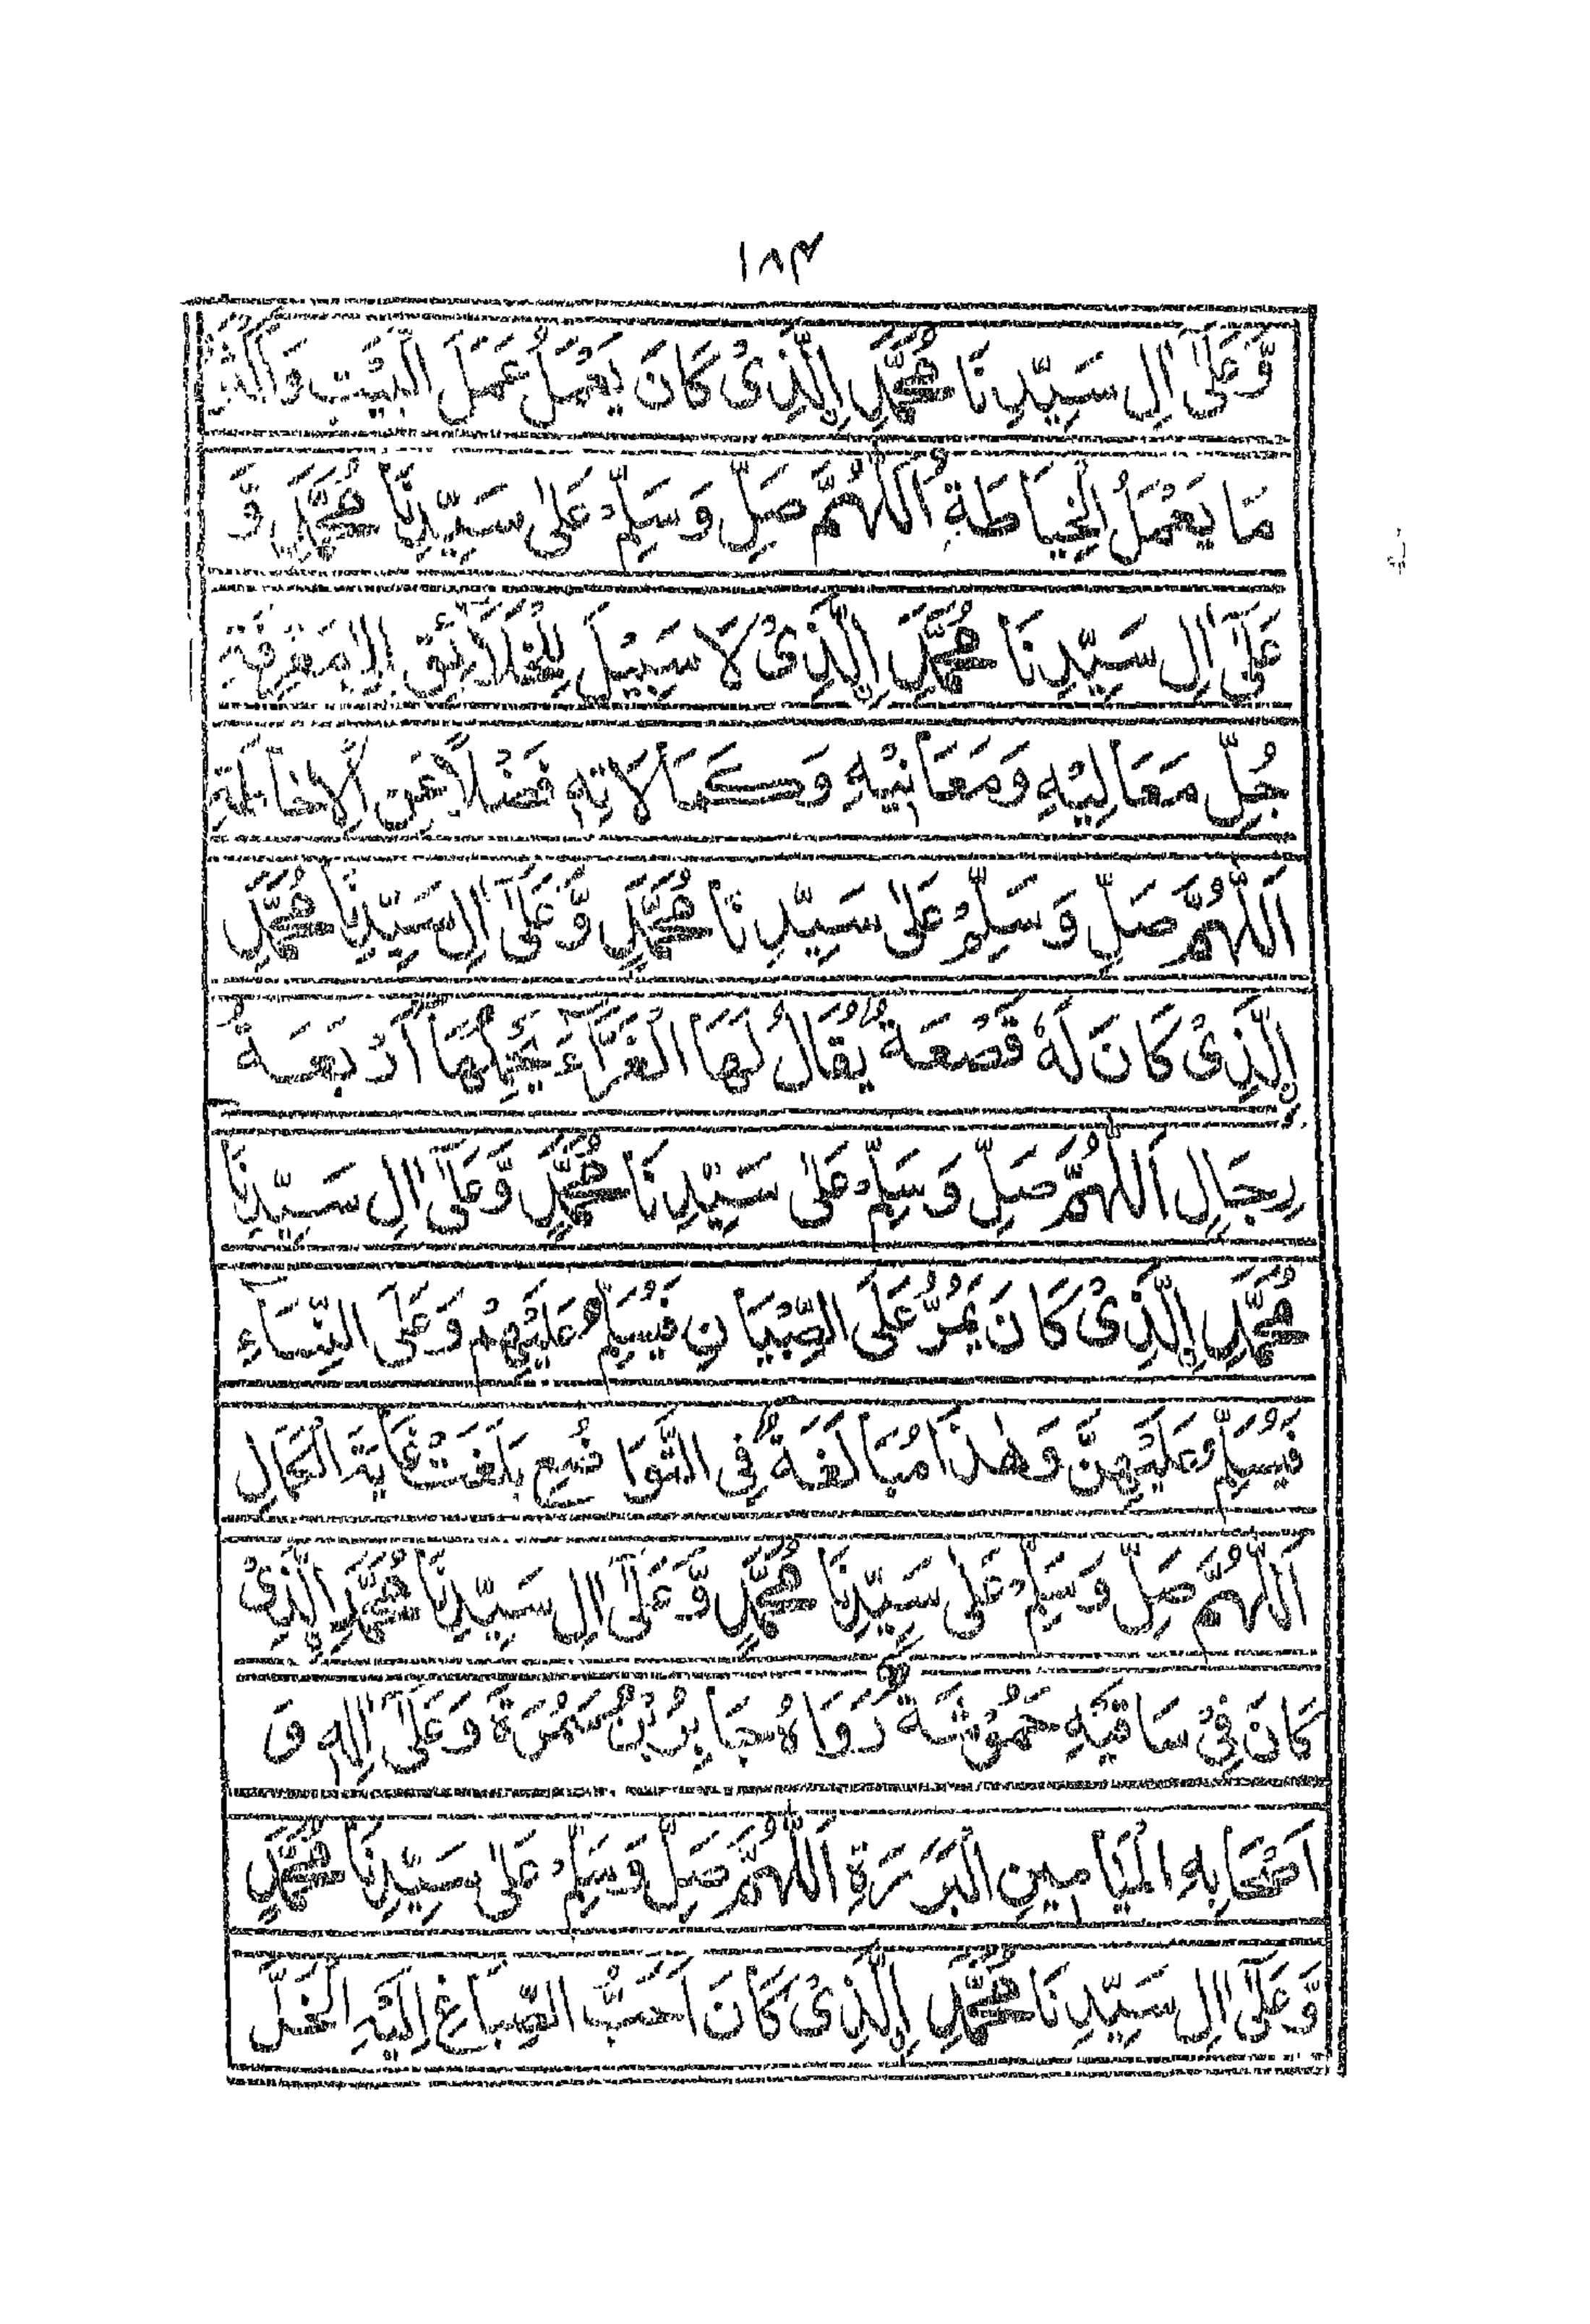 ۱۸۴
وَّعَلٰٓى اٰلِ سَيِّدِنَا مُحَمَّدِ ۣالَّذِىْ كَانَ يَعْمَلُ عَمَلَ الْبَيْتِ وَاَكْثَرُ
مَا يَعْمَلُ الْخِيَاطَةِ اَللّٰهُمَّ صَلِّ وَسَلِّمْ عَلٰى سَيِّدِنَا مُحَمَّدٍ وَّ
عَلٰٓى اٰلِ سَيِّدِنَا مُحَمَّدِ ۣالَّذِىْ لَا سَبِيْلَ لِلْخَلَآئِقِ اِلٰى مَعْرِفَةِ
جُلِّ مَعَالِيْهِ وَمَعَانِيْهِ وَكَمَالَاتِهٖ فَضْلًا عَنِ الْاِحَاطَةِ
اَللّٰهُمَّ صَلِّ وَسَلِّمْ عَلٰى سَيِّدِنَا مُحَمَّدٍ وَّعَلٰٓى اٰلِ سَيِّدِنَا مُحَمَّدِ
ۣالَّذِىْ كَانَ لَهٗ قَصْعَةٌ يُقَالُ لَهَا الْغَرَّآءُ يَحْمِلُهَا اَرْبَعَةُ
رِجَالٍ اَللّٰهُمَّ صَلِّ وَسَلِّمْ عَلٰى سَيِّدِنَا مُحَمَّدٍ وَّعَلٰٓى اٰلِ سَيِّدِنَا
مُحَمَّدِ ۣالَّذِىْ كَانَ يَمُرُّ عَلَى الصِّبْيَانِ فَيُسَلِّمُ عَلَيْهِمْ وَعَلَى النِّسَآءِ
فَيُسَلِّمُ عَلَيْهِنَّ وَهٰذَا مُبَالَغَةٌ فِى التَّوَاضُعِ بَلَغَتْ غَايَةَ الْكَمَالِ
اَللّٰهُمَّ صَلِّ وَسَلِّمْ عَلٰى سَيِّدِنَا مُحَمَّدٍ وَّعَلٰٓى اٰلِ سَيِّدِنَا مُحَمَّدِ ۣالَّذِىْ
كَانَ فِىْ سَاقَيْهِ حُمُوْشَةٌ رَوَاهُ جَابِرُ بْنُ سَمُرَةَ وَعَلٰٓى اٰلِهٖ وَ
اَصْحَابِهِ الْمَيَامِيْنِ الْبَرَرَةِ اَللّٰهُمَّ صَلِّ وَسَلِّمْ عَلٰى سَيِّدِنَا مُحَمَّدٍ
وَّعَلٰٓى اٰلِ سَيِّدِنَا مُحَمَّدِ ۣالَّذِىْ كَانَ اَحَبُّ الصِّبَاغِ اِلَيْهِ الْخَلَّ